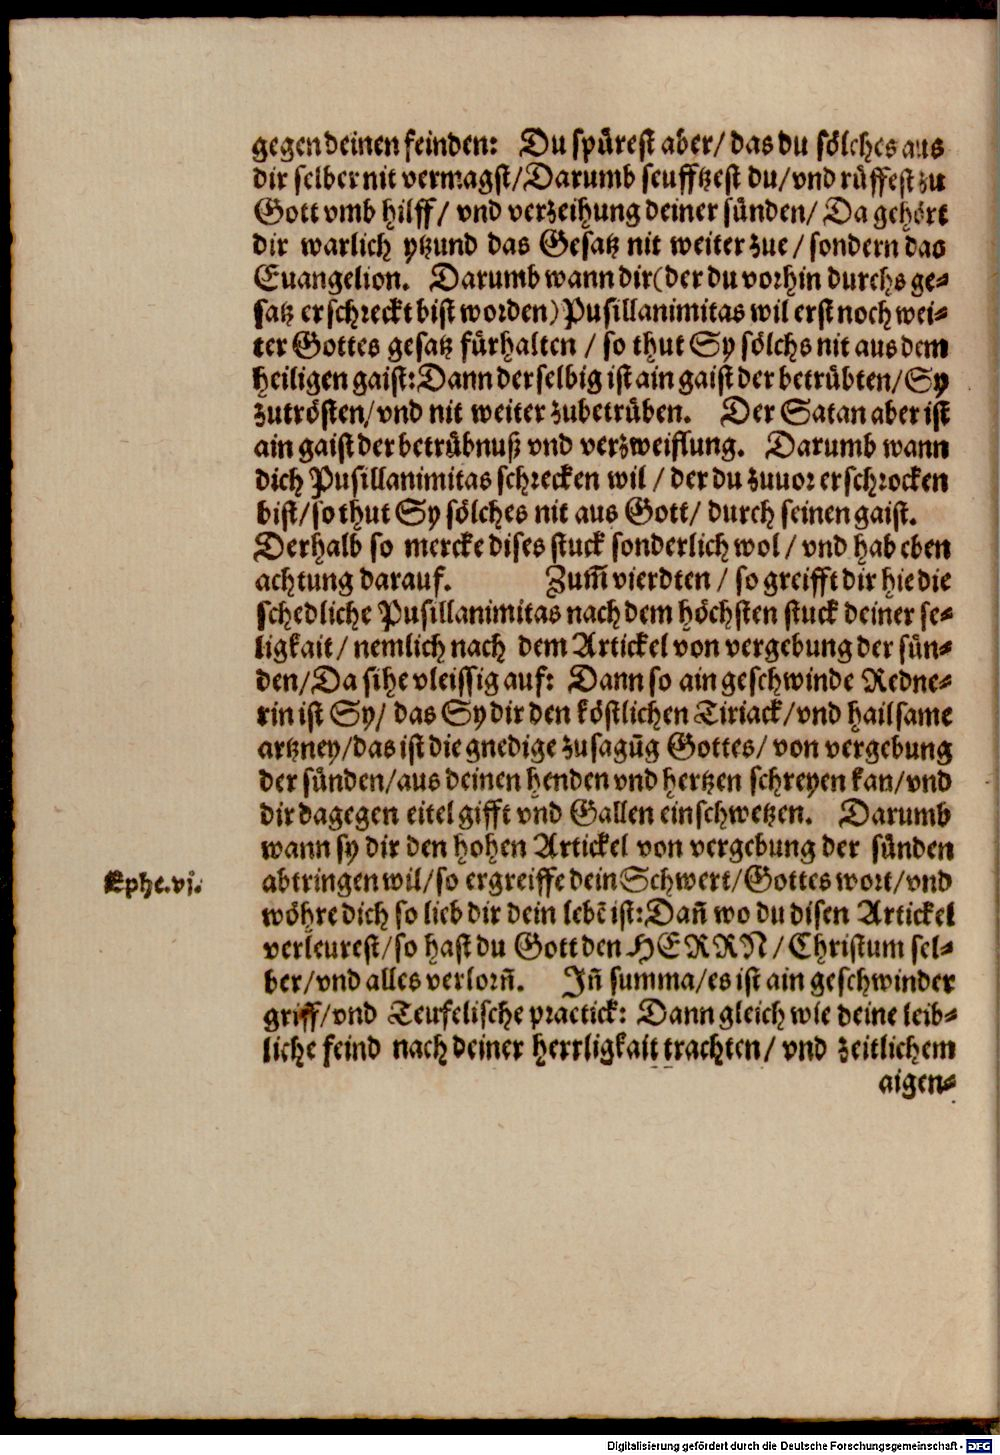 gegen deinen feinden: Du spürest aber/ das du sölches aus
dir selber nit vermagst/ Darumb seufftzest du/ vnd rüffest zu
Gott vmb hilff/ vnd verzeihung deiner sünden/ Da gehört
dir warlich ytzund das Gesatz nit weiter zue/ sondern das
Euangelion. Darumb wann dir (der du vorhin durchs ge⸗
satz erschreckt bist worden) Pusillanimitas wil erst noch wei⸗
ter Gottes gesatz fürhalten / so thut Sy sölchs nit aus dem
heiligen gaist: Dann derselbig ist ain gaist der betrübten/ Sy
zutrösten/ vnd nit weiter zubetrüben. Der Satan aber ist
ain gaist der betrübnuß vnd verzweiflung. Darumb wann
dich Pusillanimitas schrecken wil / der du zuuor erschrocken
bist/ so thut Sy sölches nit aus Gott/ durch seinen gaist.
Derhalb so mercke dises stuck sonderlich wol / vnd hab eben
achtung darauf. Zum̃ vierdten / so greifft dir hie die
schedliche Pusillanimitas nach dem höchsten stuck deiner se⸗
ligkait/ nemlich nach dem Artickel von vergebung der sün⸗
den/ Da sihe vleissig auf: Dann so ain geschwinde Redne⸗
rin ist Sy/ das Sy dir den köstlichen Tiriack/ vnd hailsame
artzney/ das ist die gnedige zusagũg Gottes/ von vergebung
der sünden/ aus deinen henden vnd hertzen schreyen kan/ vnd
dir dagegen eitel gifft vnd Gallen einschwetzen. Darumb
wann sy dir den hohen Artickel von vergebung der sünden
abtringen wil/ so ergreiffe dein Schwert/ Gottes wort/ vnd
Ephe.vj.
wöhre dich so lieb dir dein lebẽ ist: Dañ wo du disen Artickel
verleurest/ so hast du Gott den HERRN/ Christum sel⸗
ber/ vnd alles verlorñ. Jñ summa/ es ist ain geschwinder
griff/ vnd Teufelische practick: Dann gleich wie deine leib⸗
liche feind nach deiner herrligkait trachten/ vnd zeitlichem
aigen⸗
Digitalisierung gefördert durch die Deutsche Forschungsgemeinschaft - DFG